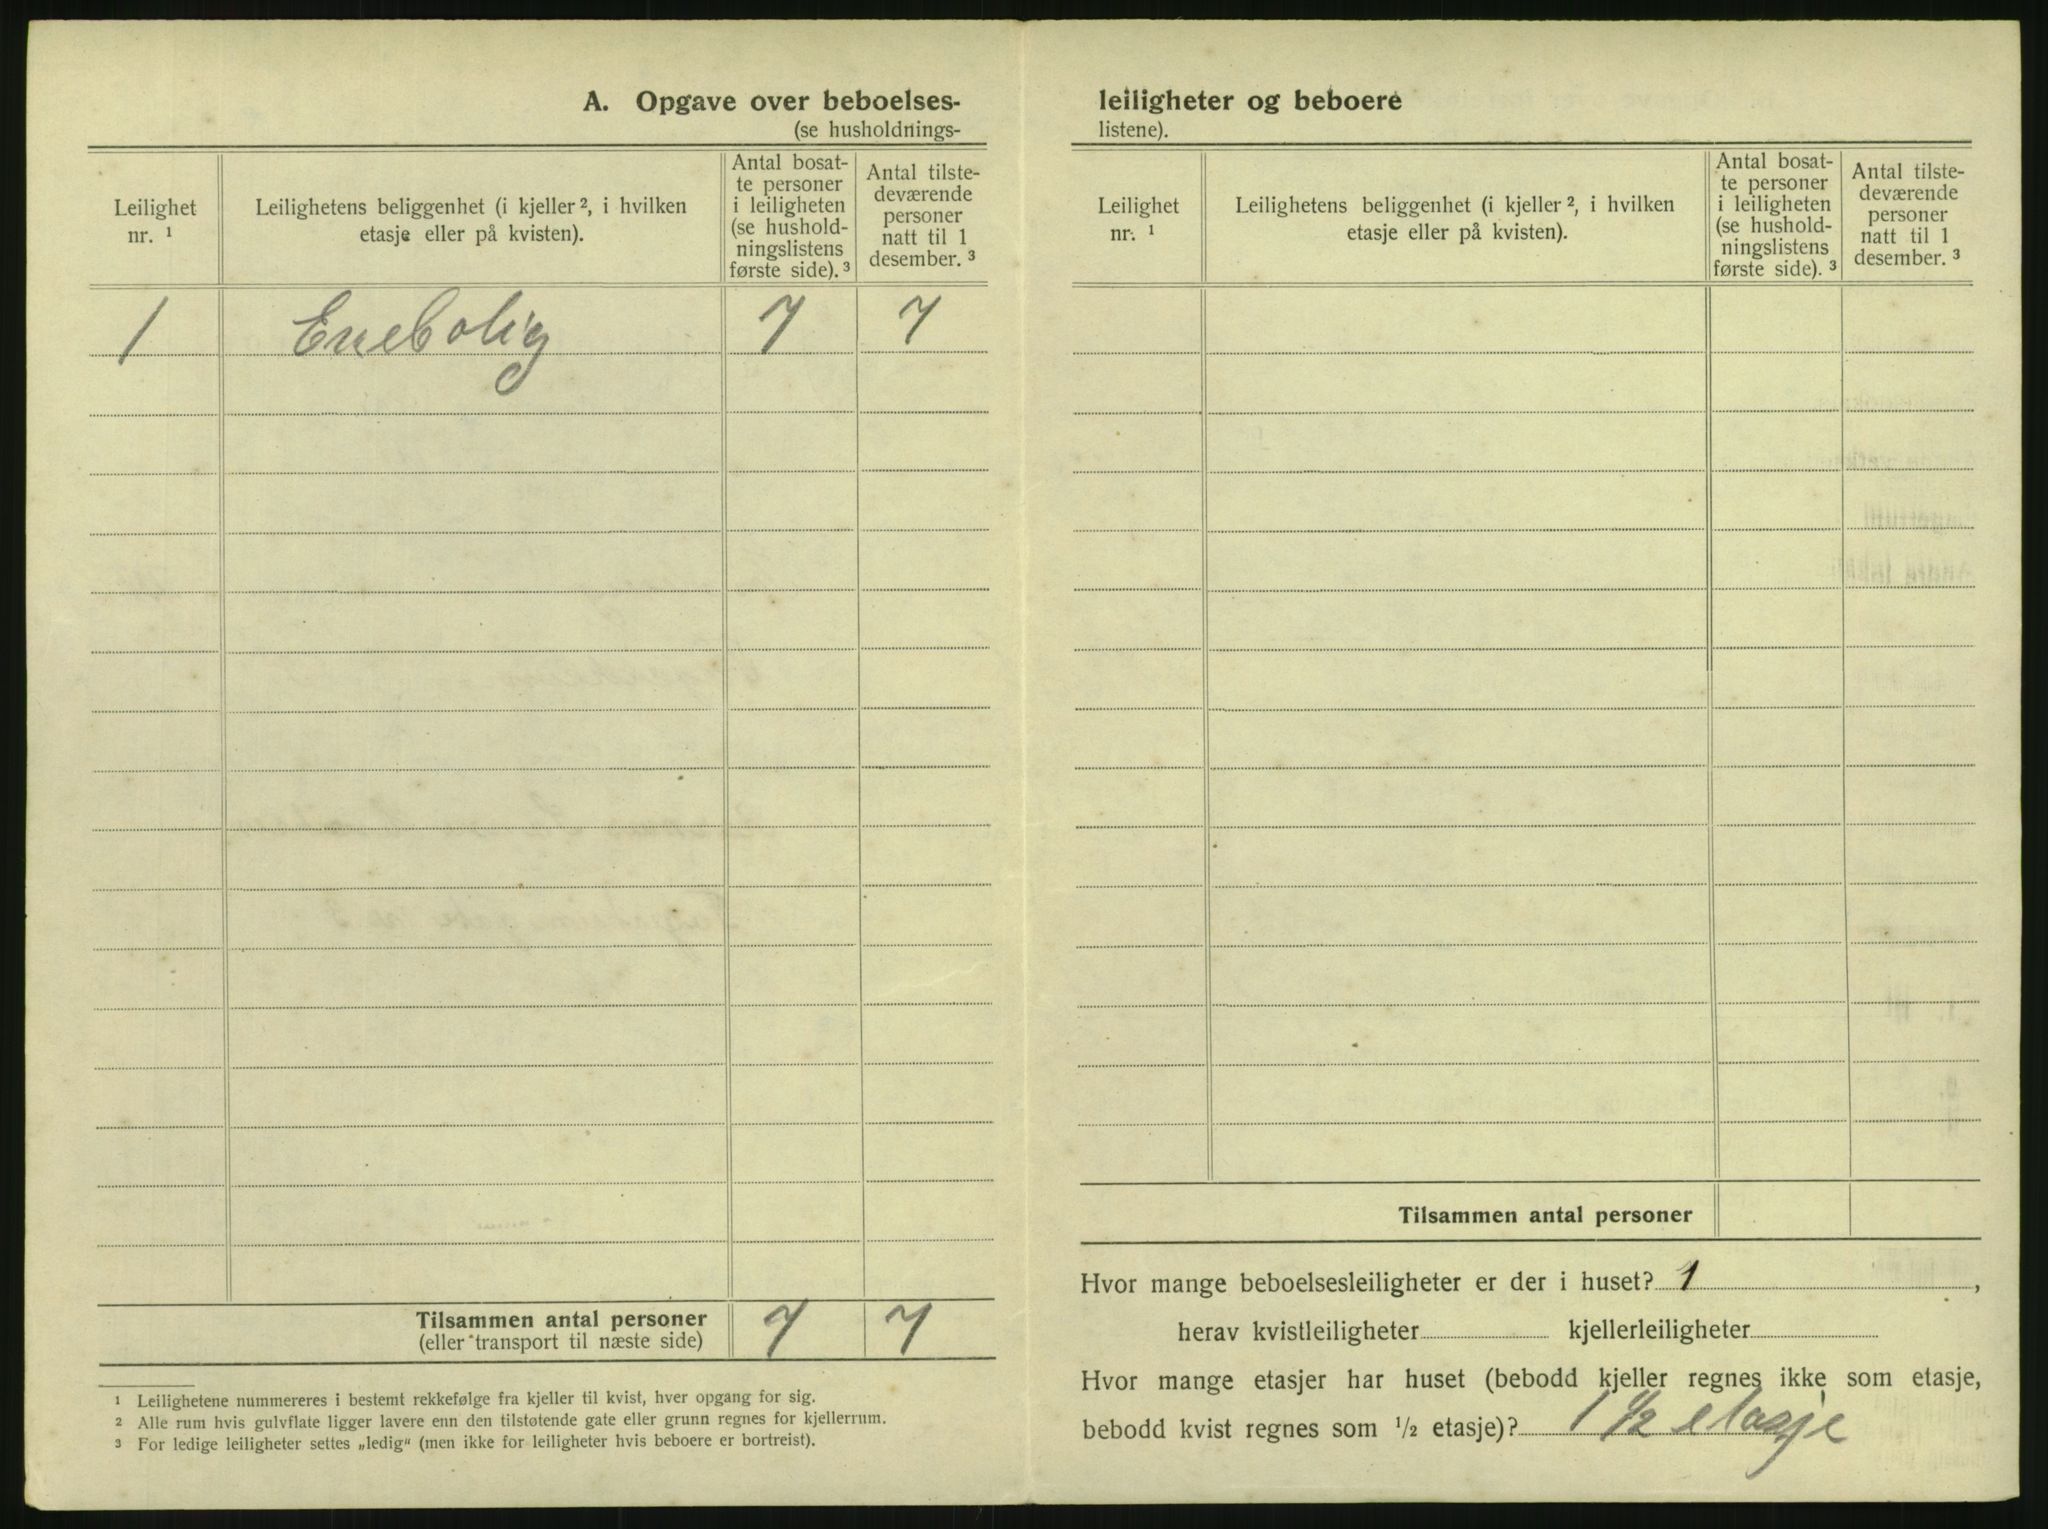 A. Opgave over beboelses-
(se husholdnings-
Leilighet
nr. ¹
Leilighetens beliggenhet (i kjeller ², i hvilken
etasje eller på kvisten).
Antal bosat-
te personer
i leiligheten
(se hushold-
ningslistens
første side). ³
Antal tilste-
deværende
personer
natt til 1
desember. ³
1 Enebolig 7 7
Tilsammen antal personer 7 7
(eller transport til næste side)
¹ Leilighetene nummereres i bestemt rekkefølge fra kjeller til kvist, hver opgang for sig.
² Alle rum hvis gulvflate ligger lavere enn den tilstøtende gate eller grunn regnes for kjellerrum.
³ For ledige leiligheter settes „ledig" (men ikke for leiligheter hvis beboere er bortreist).
leiligheter og beboere
listene).
Leilighet
nr. ¹
Leilighetens beliggenhet (i kjeller ², i hvilken
etasje eller på kvisten).
Antal bosat-
te personer
i leiligheten
(se hushold-
ningslistens
første side). ³
Antal tilste-
deværende
personer
natt til 1
desember. ³
Tilsammen antal personer
Hvor mange beboelsesleiligheter er der i huset? 1,
herav kvistleiligheter kjellerleiligheter
Hvor mange etasjer har huset (bebodd kjeller regnes ikke som etasje,
bebodd kvist regnes som ½ etasje)? 1 ½ etasje